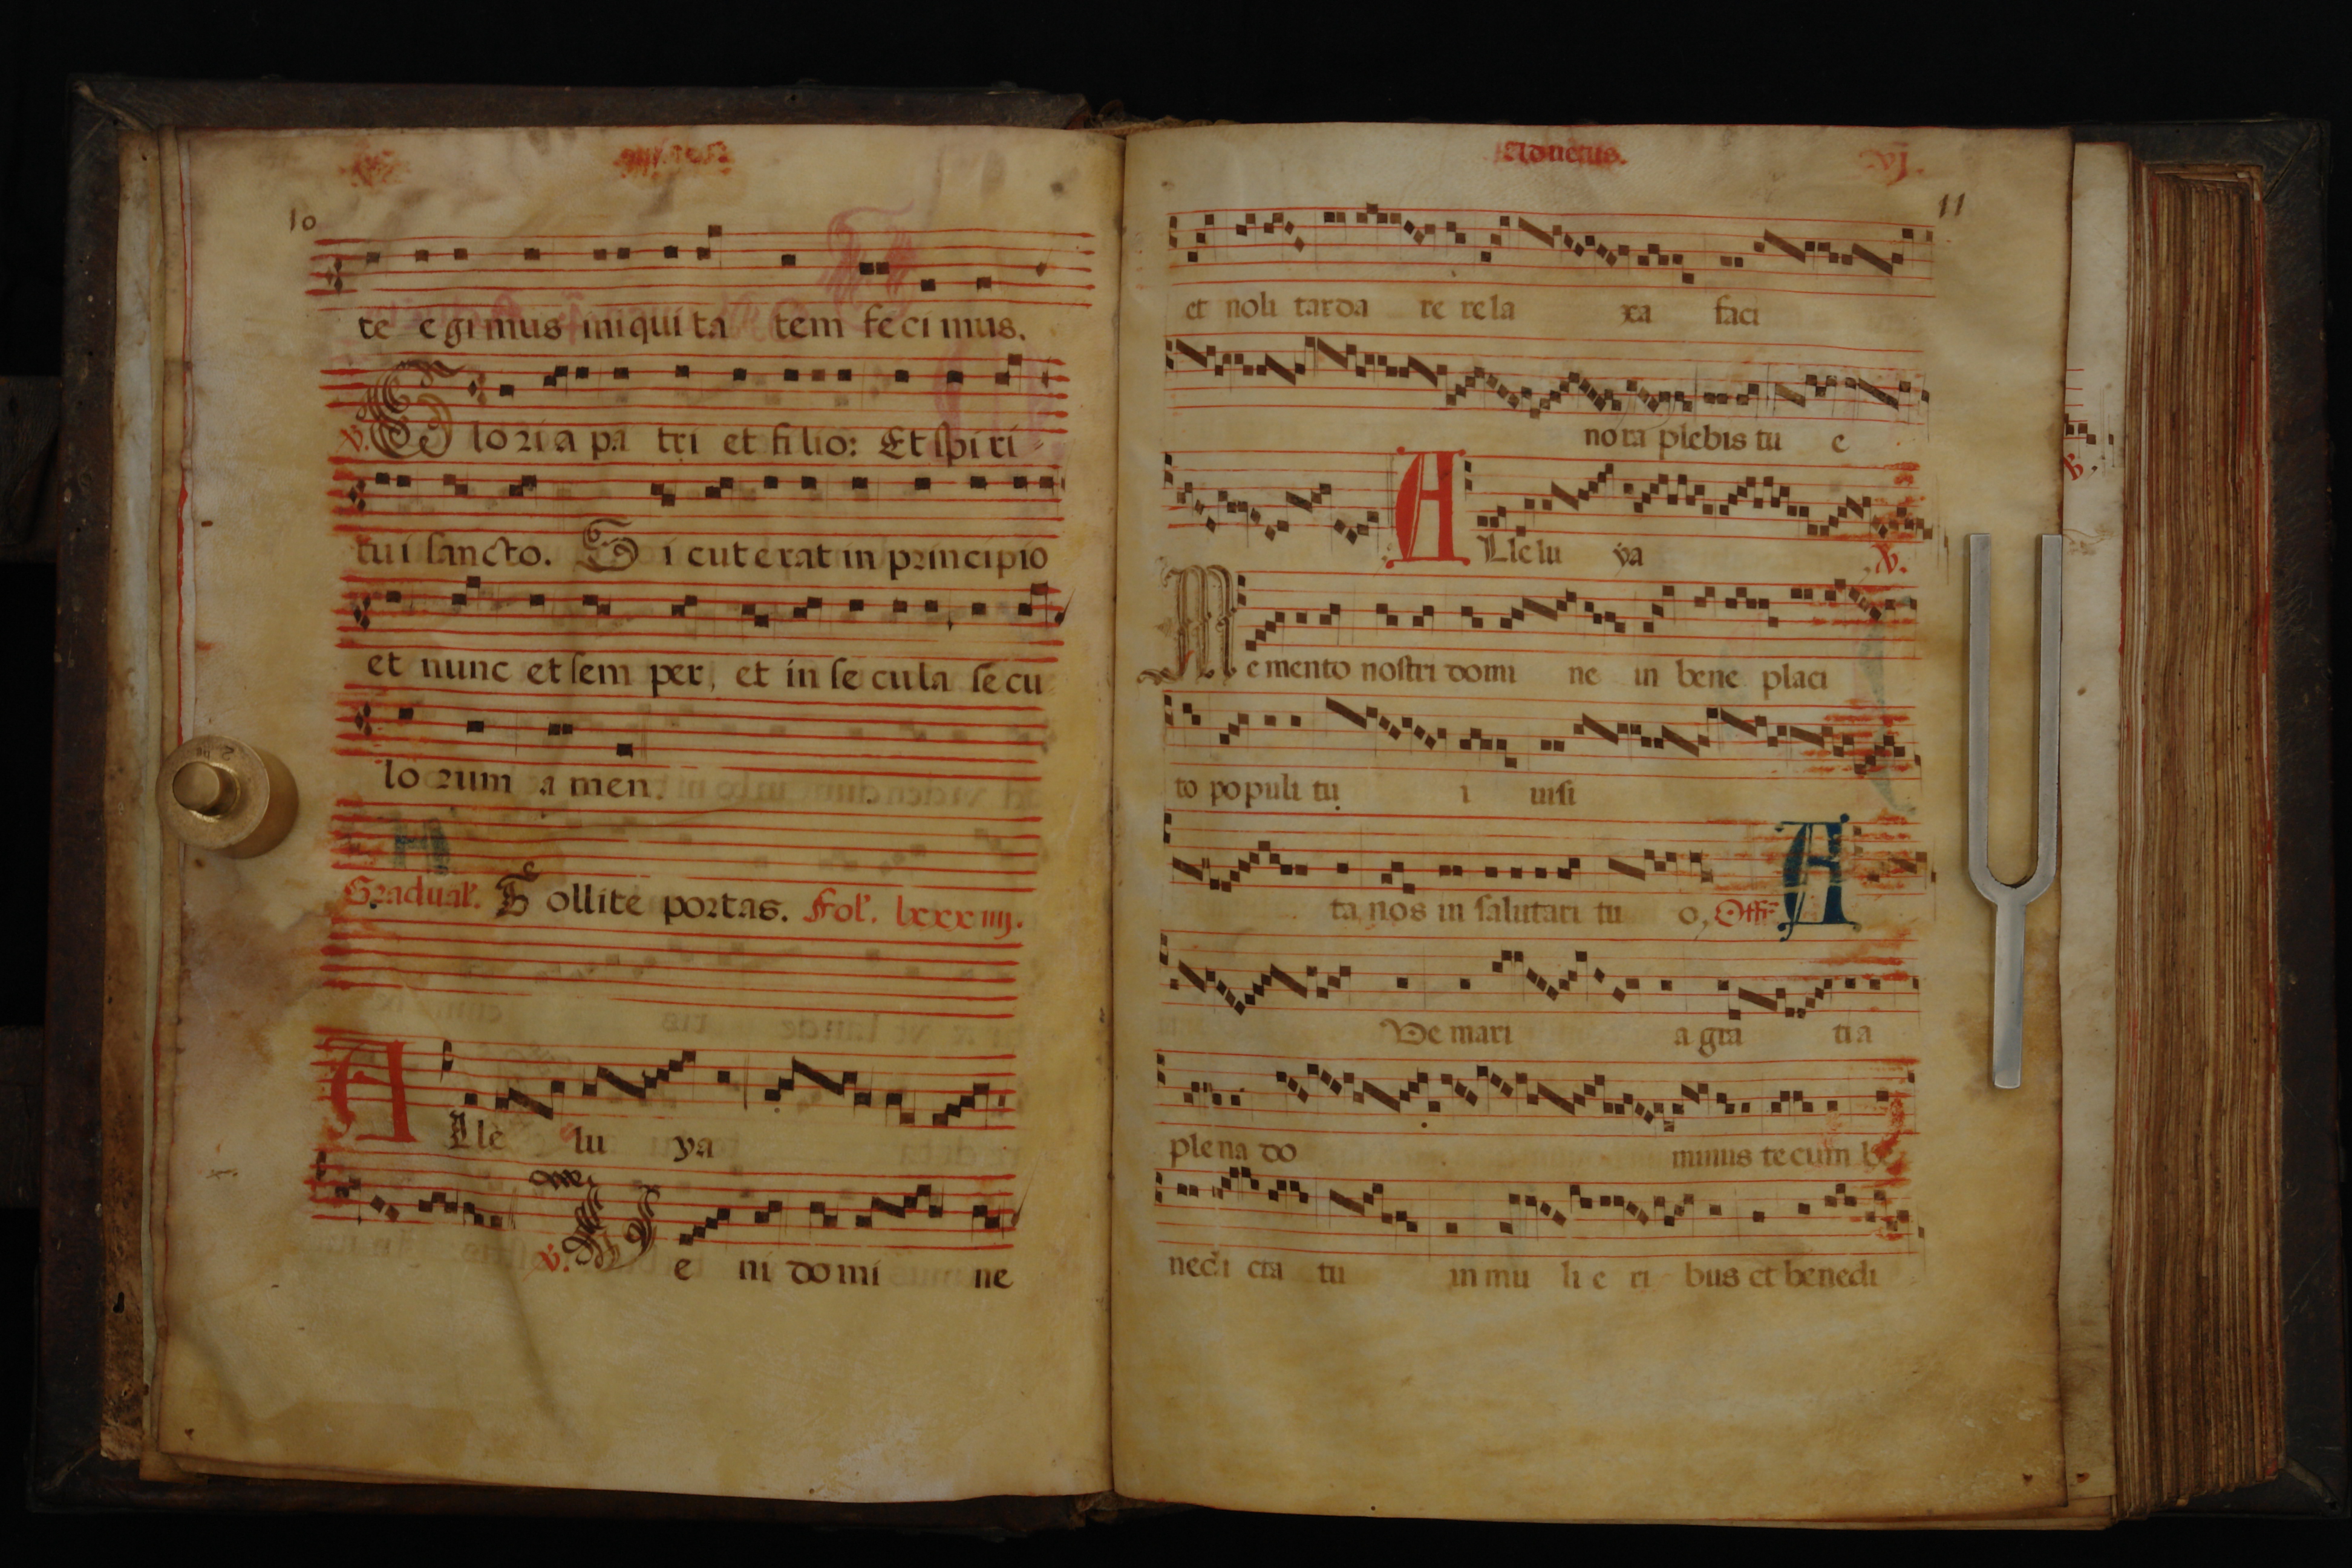 10
te egimus iniqui ta tem fe ci mus.
℣. Glo ri a pa tri et fi lio: Et spi ri
tui sancto. Si cut e rat in principio
et nunc et sem per, et in se cu la se cu
lo rum a men.
Gradual'. Tollite portas. Fol'. lxxxiiij.
Alle lu ya
℣. Ve ni do mi ne
Aduetus. vj.
11
et noli tarda re re la xa faci
nora plebis tu e
Alle lu ya ℣.
Me mento nostri domi ne in bene placi
to populi tu i uisi
ta nos in salutari tu o, Offr A
Ve mari a gra ti a
plena do minus tecum be
nedi cta tu in mu li e ri bus et benedi